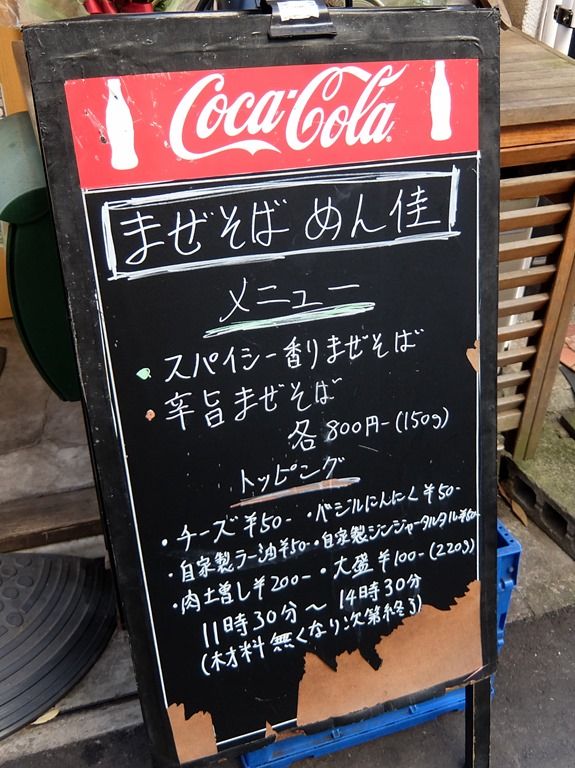 Coca-Cola
まぜそば めん佳
メニュー
スパイシー香りまぜそば
辛旨まぜそば
各800円-(150g)
トッピング
・チーズ¥50- ・バジルにんにく¥50-
・自家製ラー油¥50- ・自家製ジンジャータルタル¥50-
・肉土曽し¥200- ・大盛¥100-(220g)
11時30分〜14時30分
(材料無くなり次第終了)